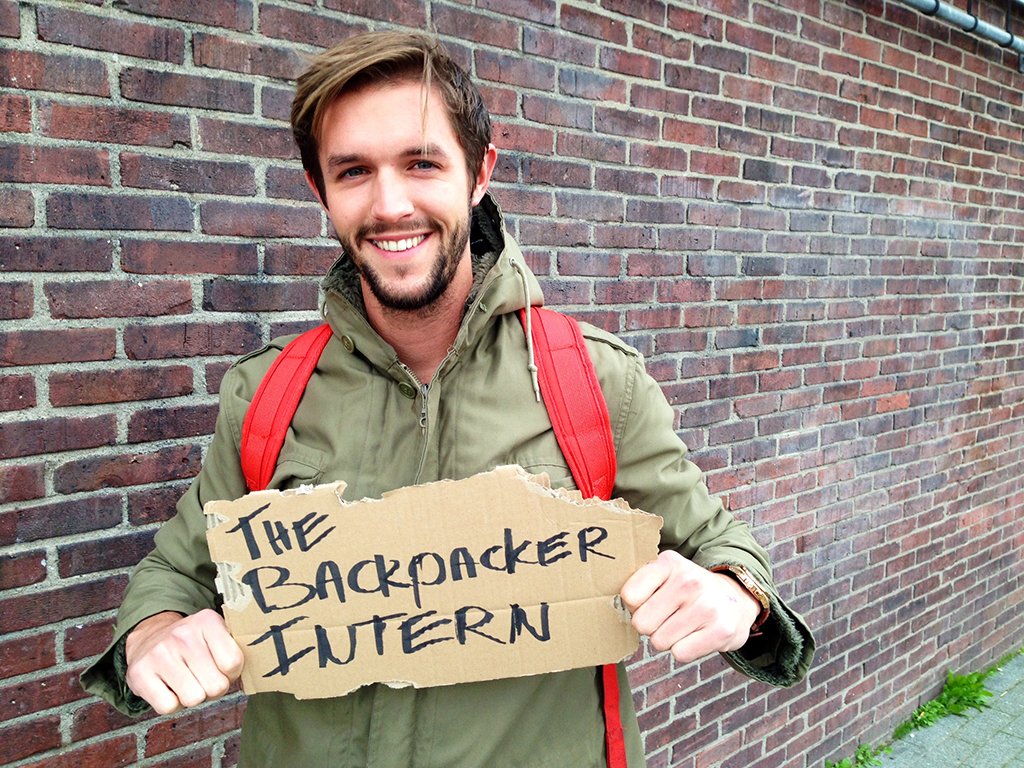 THE
BACKPACKER
INTERN